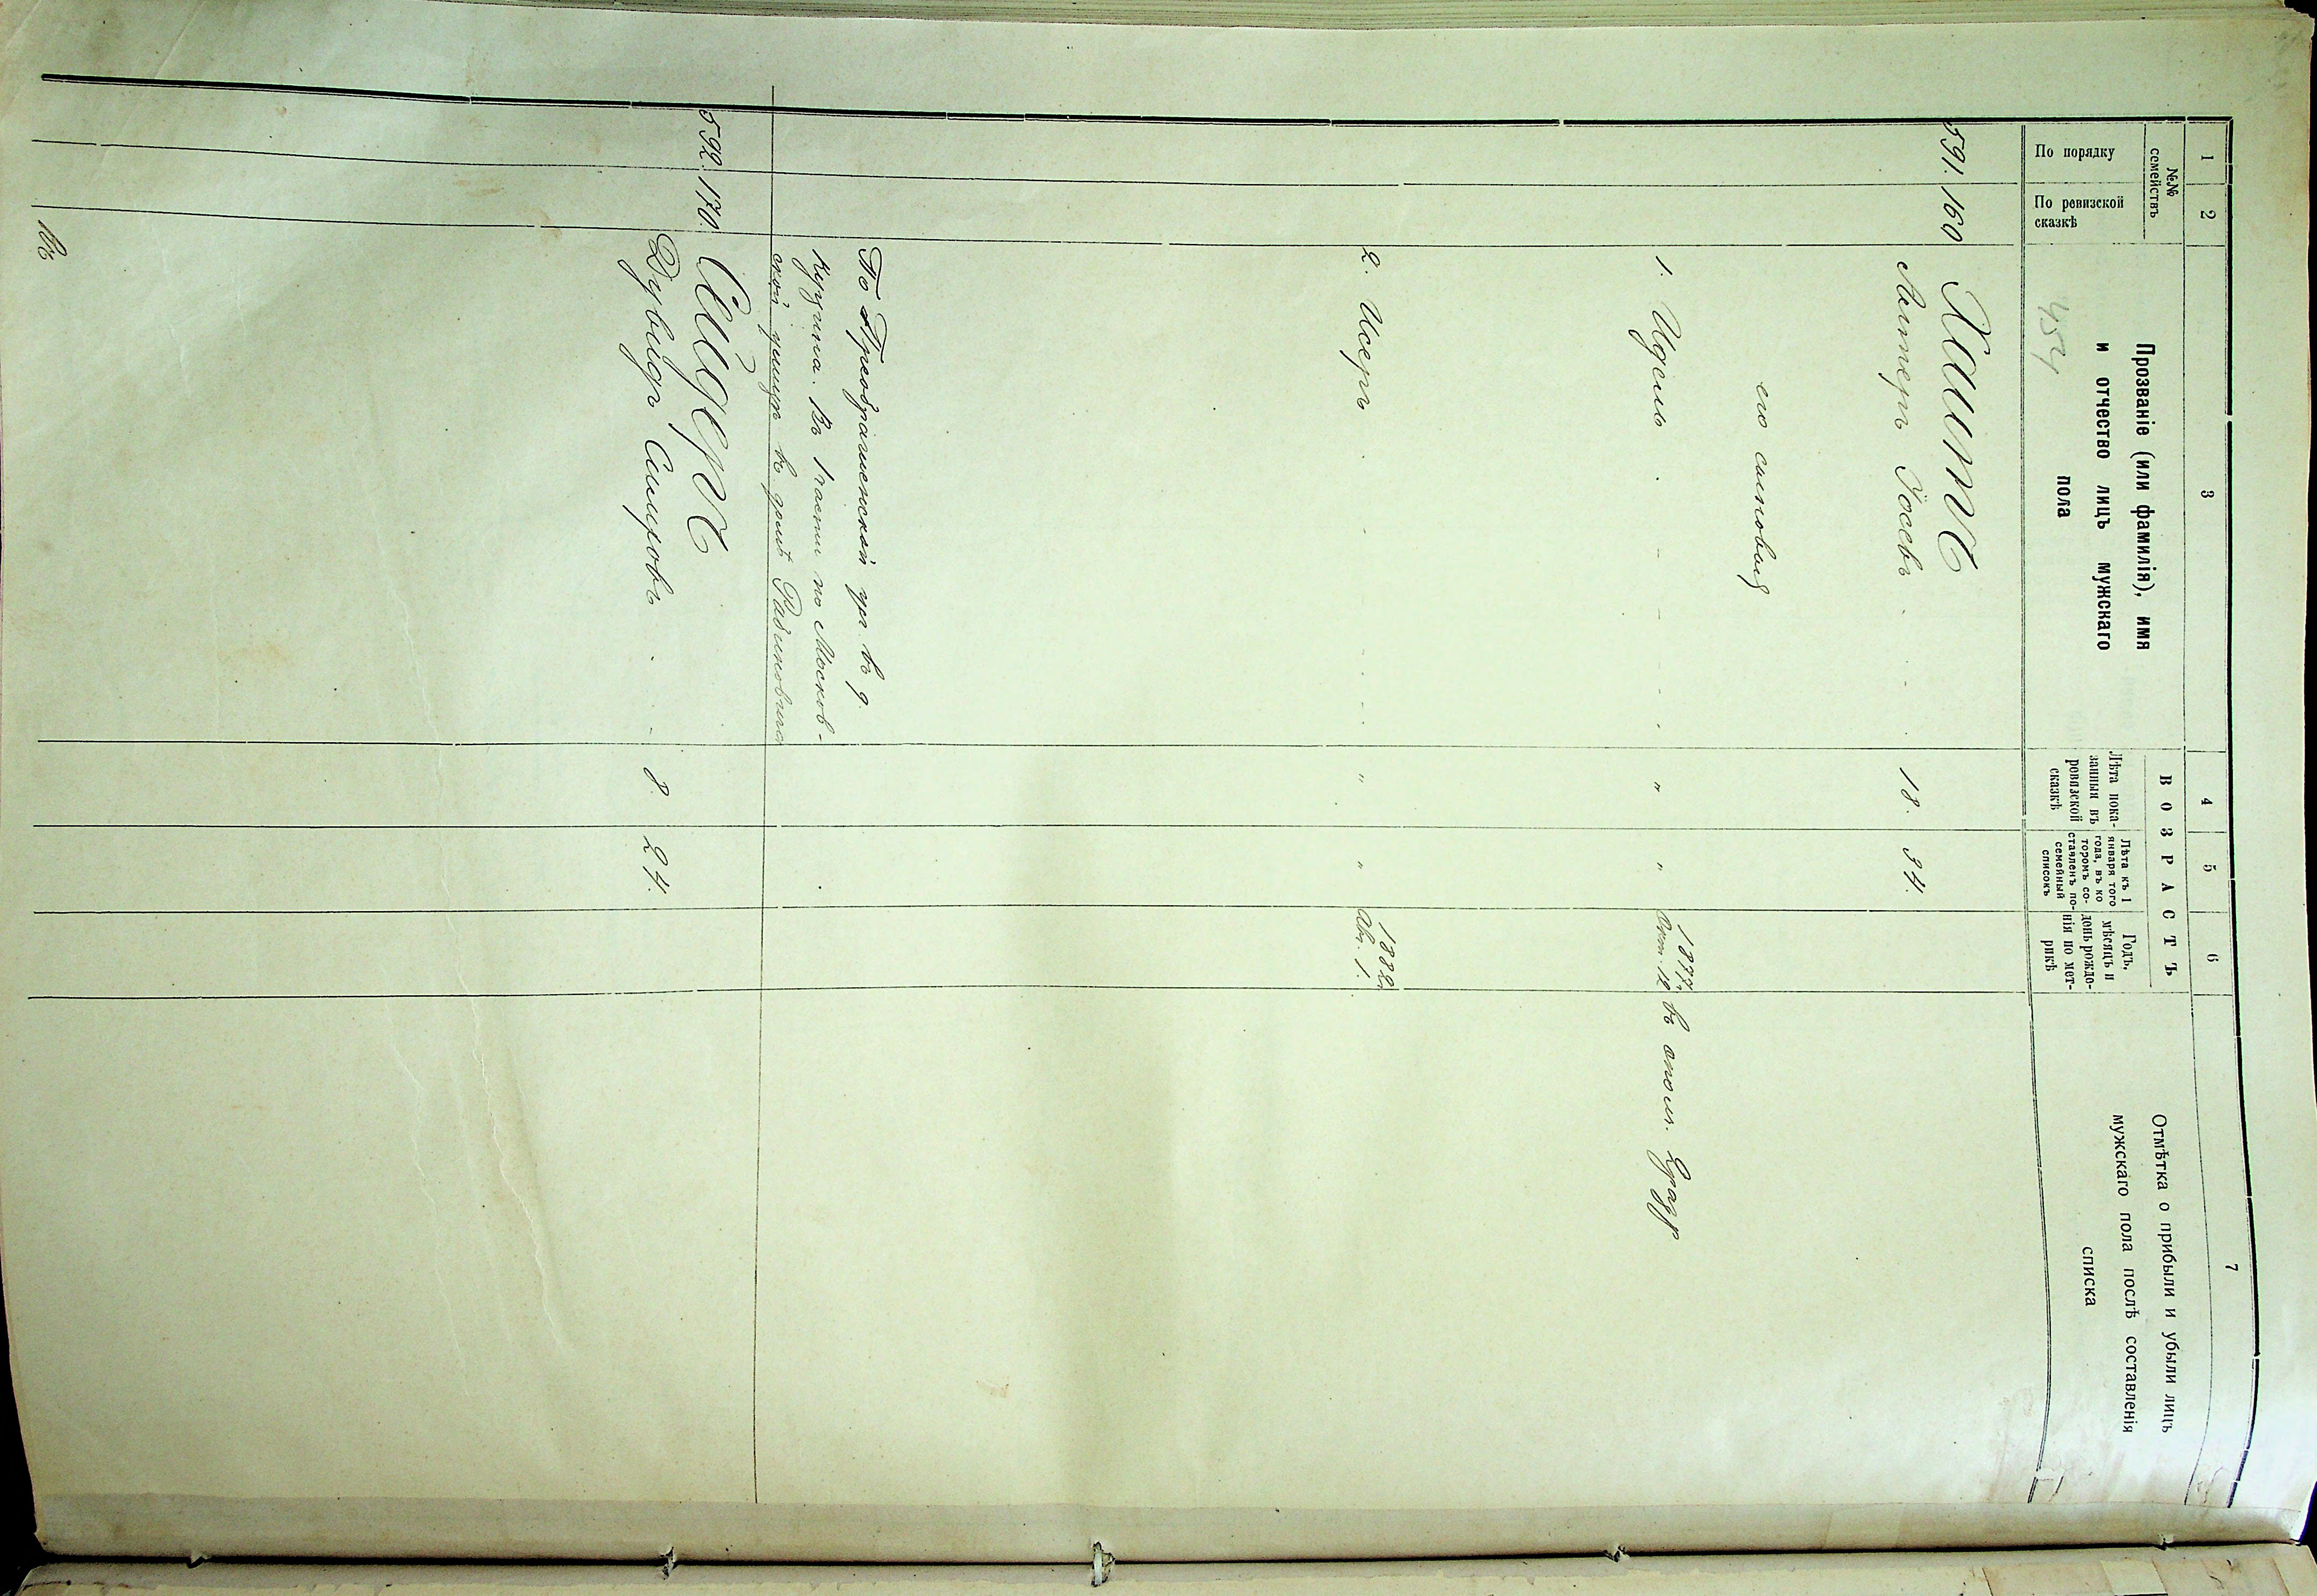 1 2 3 4 5 6 7
№№ семействъ
По порядку
По ревизской
сказкѣ
Прозваніе (или фамилія), имя
и отчество лицъ мужскаго
пола
ВОЗРАСТЪ
Лѣта пока-
занныя въ
ревизской
сказкѣ
Лѣта къ 1
января того
года, въ ко
торомъ со-
ставленъ по-
семейный
списокъ
Годъ,
мѣсяцъ и
день рожде-
нія по мет-
рикѣ
Отмѣтка о прибыли и убыли лицъ
мужскаго пола послѣ составленія
списка
454
591. 160 Хаитъ
Лейтеръ Іосевъ 18. 34.
его сыновья
1. Идель " " 1877 г. Окт. 12 въ опол. 2 разр
2. Исеръ " " 1882 г. Авг. 1.
По Преображенской ул. въ д.
Курзина. въ 1 части по Москов-
ской улицѣ въ домѣ Рабиновича
592. 170. Сайдеръ
Дувидъ 8. 24.